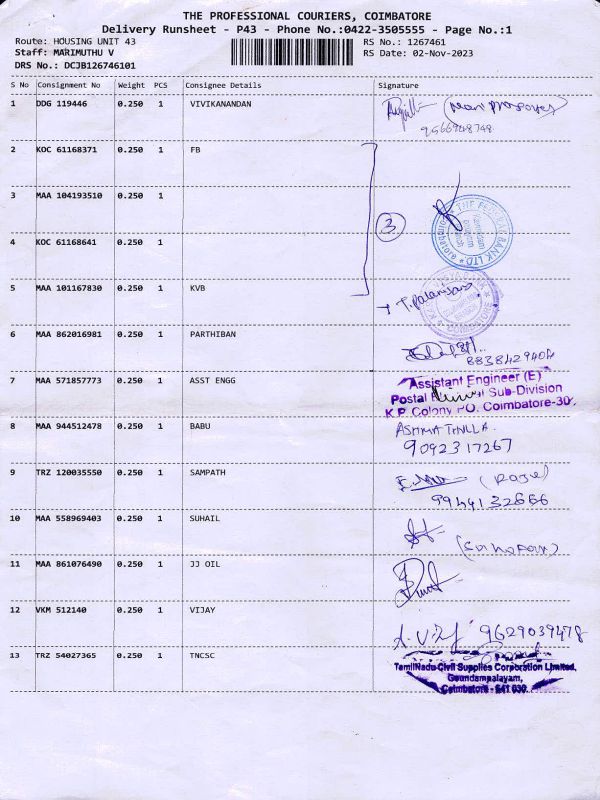 THE PROFESSIONAL COURIERS, COIMBATORE
Delivery Runsheet - P43 - Phone No.:0422-3505555 - Page No.:1
Route: HOUSING UNIT 43 RS No.: 1267461
Staff: MARIMUTHU V RS Date: 02-Nov-2023
DRS No.: DCJB126746101
S No Consignment No Weight PCS Consignee Details Signature
1 DDG 119446 0.250 1 VIVIKANANDAN
9566948748
2 KOC 61168371 0.250 1 FB
3 MAA 104193510 0.250 1
THE FEDERAL BANK LTD
3
4 KOC 61168641 0.250 1
5 MAA 101167830 0.250 1 KVB
T. Palanisamy
6 MAA 862016981 0.250 1 PARTHIBAN
8838429404
7 MAA 571857773 0.250 1 ASST ENGG
Assistant Engineer (E)
Postal Sub-Division
K.P. Colony PO. Coimbatore-30.
8 MAA 944512478 0.250 1 BABU
9092317267
9 TRZ 120035550 0.250 1 SAMPATH
9944132666
10 MAA 558969403 0.250 1 SUHAIL
11 MAA 861076490 0.250 1 JJ OIL
12 VKM 512140 0.250 1 VIJAY
9629039478
13 TRZ 54027365 0.250 1 TNCSC
TamilNadu Civil Supplies Corporation Limited,
Goundampalayam,
Coimbatore - 641 030.